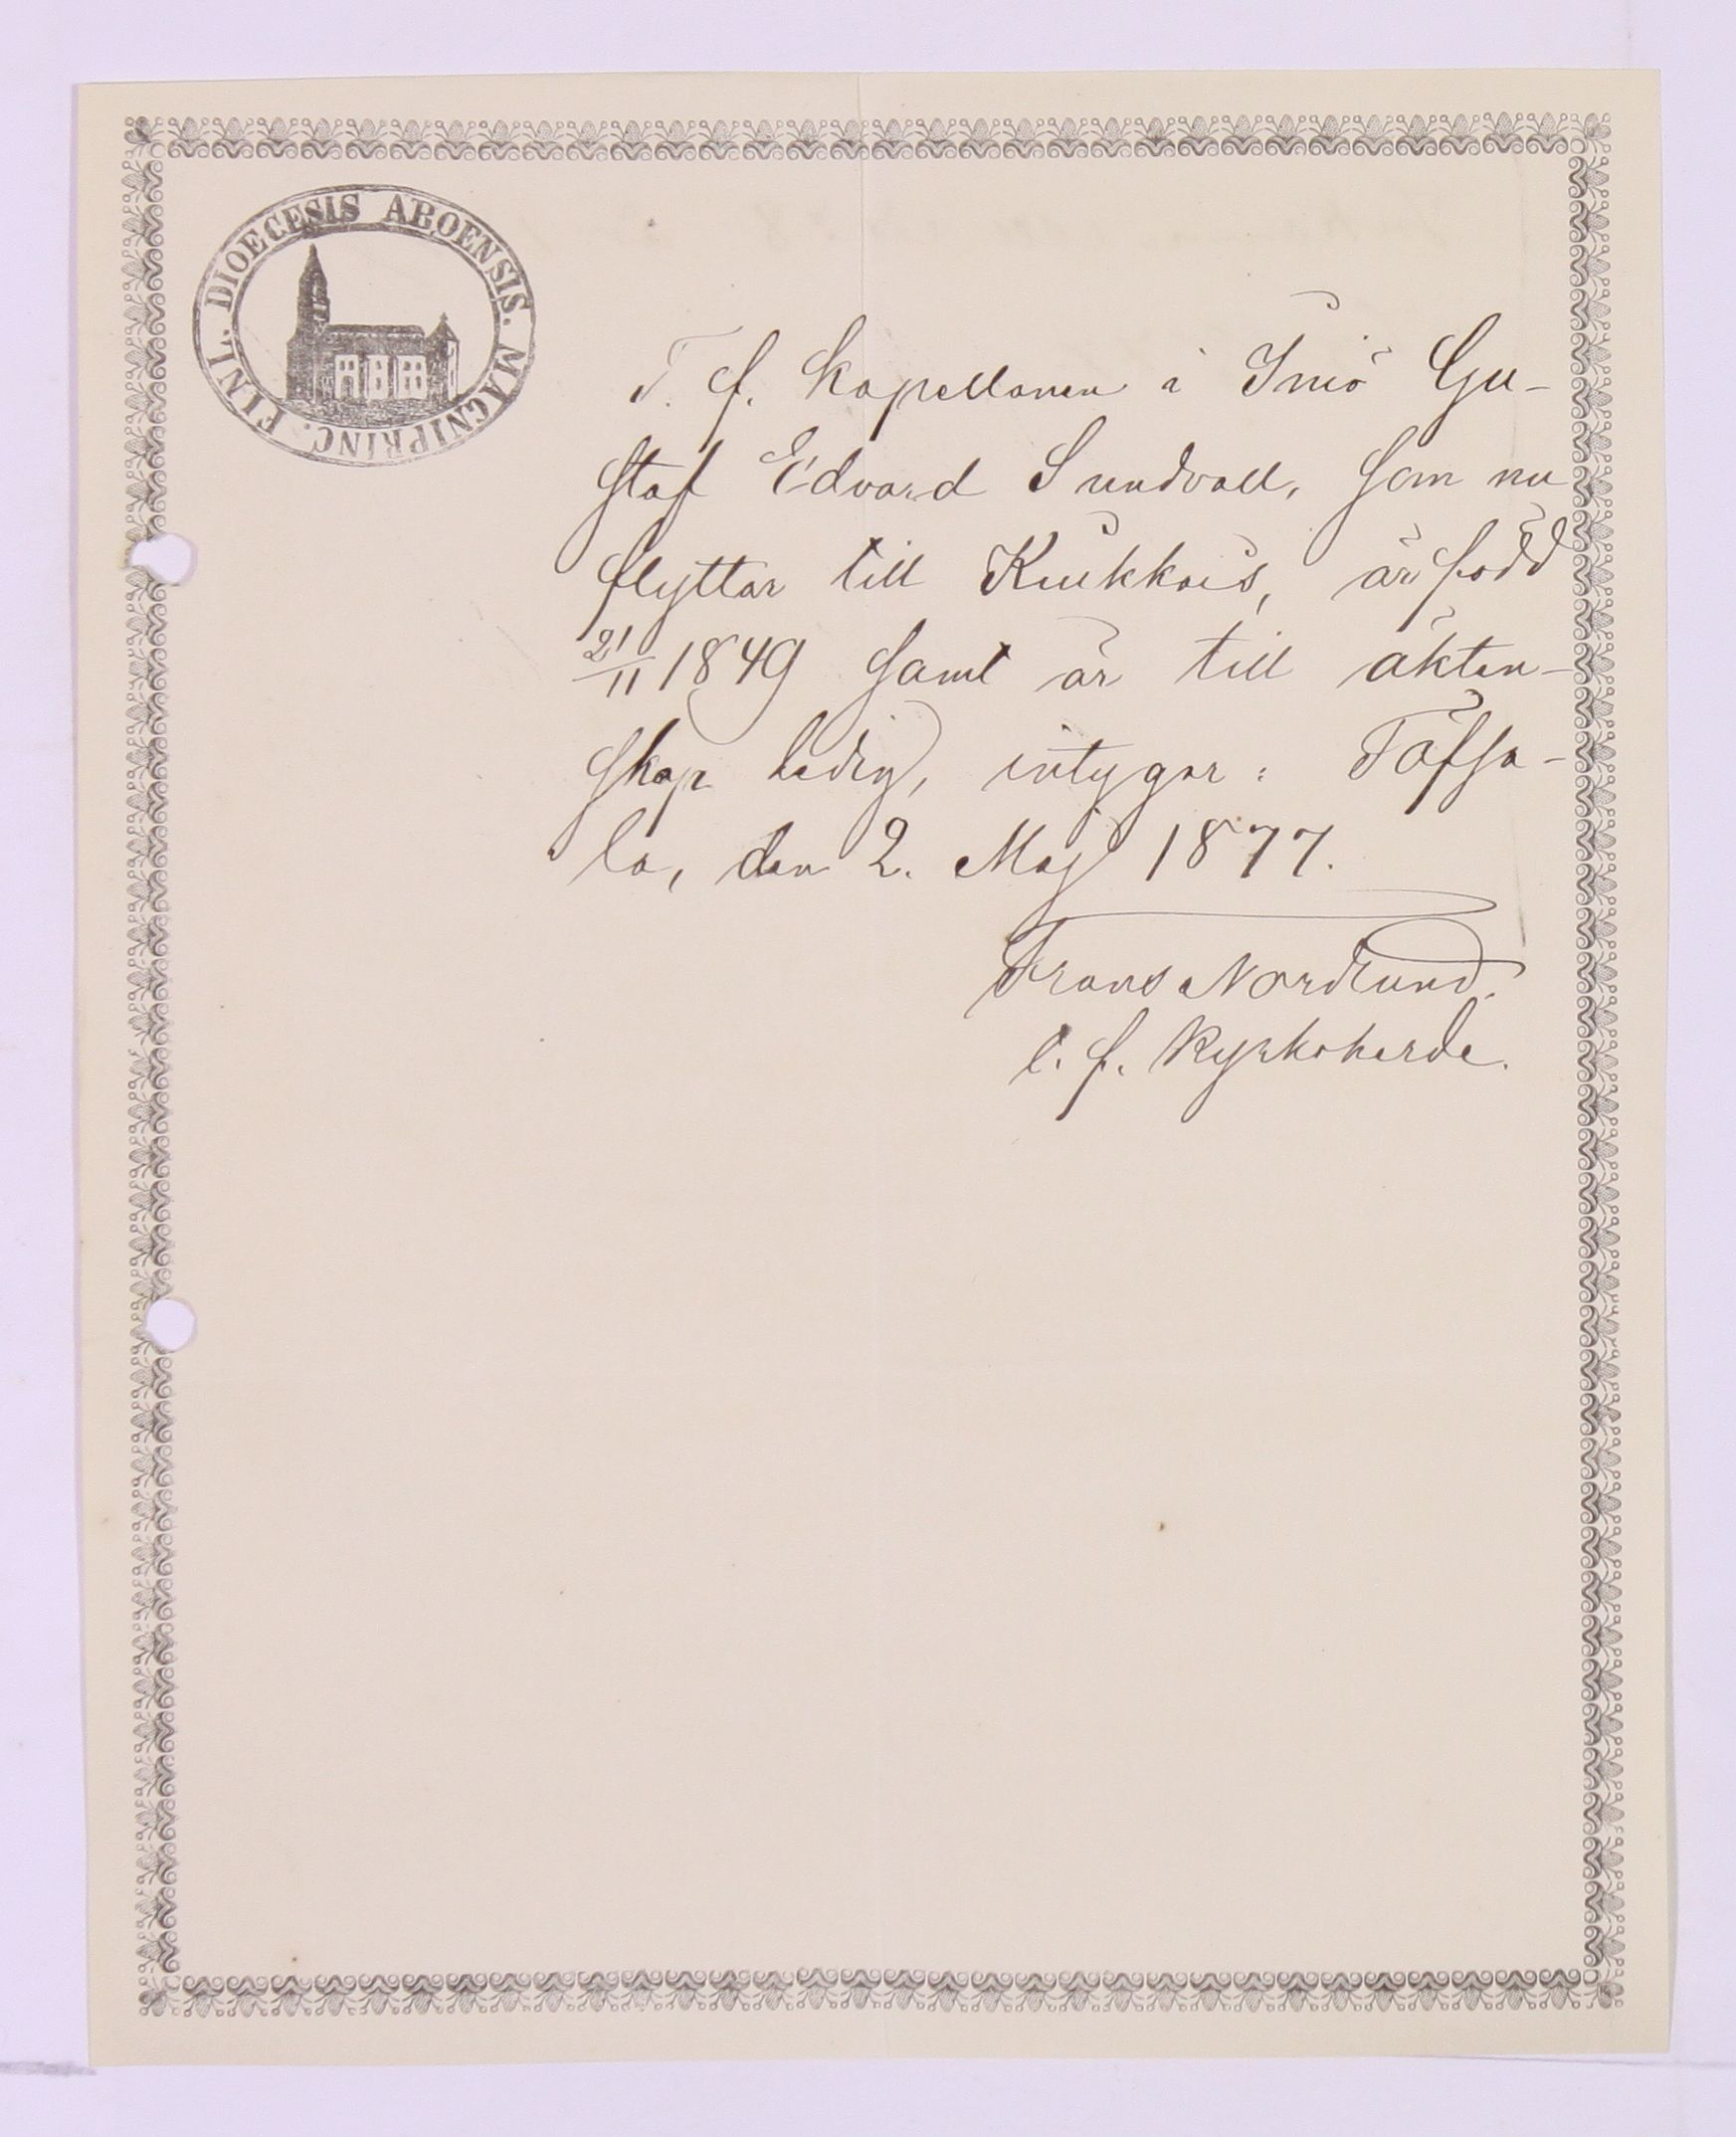 DIOECESIS ABOENSIS. MAGNIPRINC. FINL.
T. f. kapellanen i Iniö Gu-
staf Edvard Sundvall, som nu
flyttar till Kiukkois, är född
21/11 1849 samt är till äkten-
skap ledig, intygar: Töfsa-
la, den 2. Maj 1877.
Frans Nordlund.
t. f. kyrkoherde.